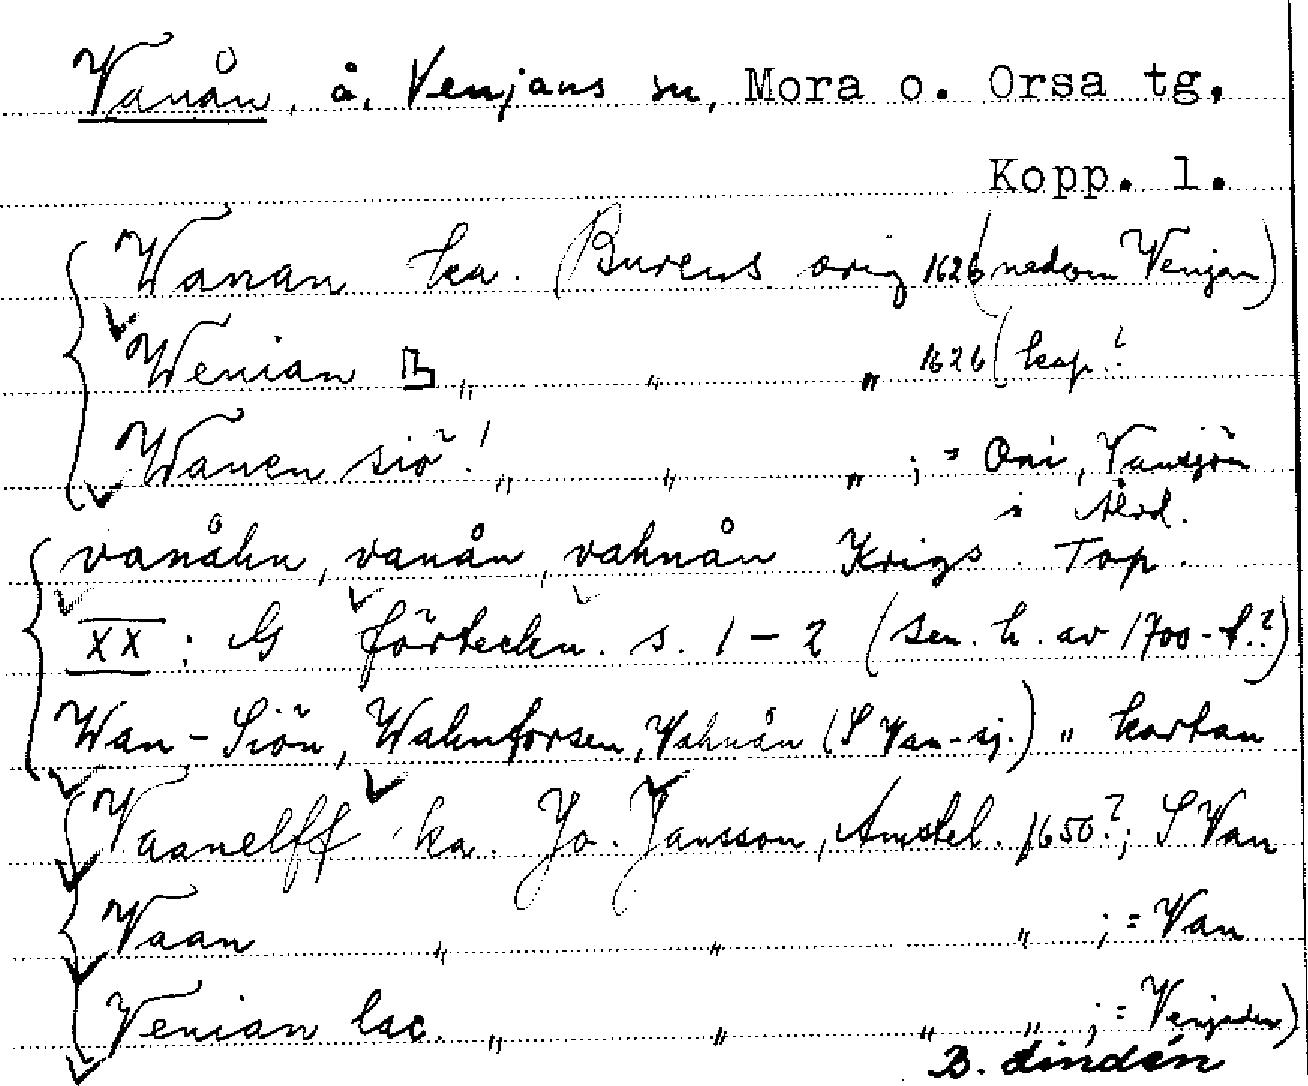 Vanån, å, Venjans sn, Mora o. Orsa tg.
Kopp. l.
Wanan ka. (Bureus orig 1626 (nedom Venjan)
Wenian „ „ „ 1626 (kap.!
Wanen siö! „ „ „ ; = Oni, Vansjön
i Älvd.
vanåhn, vanån, vahnån Krigs. Top.
XX : G förteckn. s. 1-2 (sen. h. av 1700-t.?)
Wan-Siön, Wahnforsen, Vahnån (S Van-sj.) „ kartan
Vaanelff ka. Jo. Jansson, Amstel. 1650?; S Van
Vaan „ „ „ ; = Van
Venian lac. „ „ „ „ ; = Venjaden)
B. Lindén